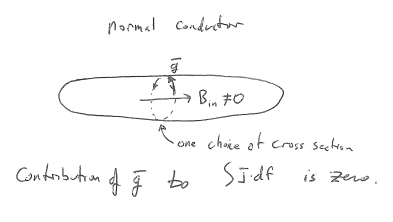 normal conductor
g̅
B_in ≠ 0
one choice of cross section
Contribution of g̅ to ∫ j̅·df is zero.